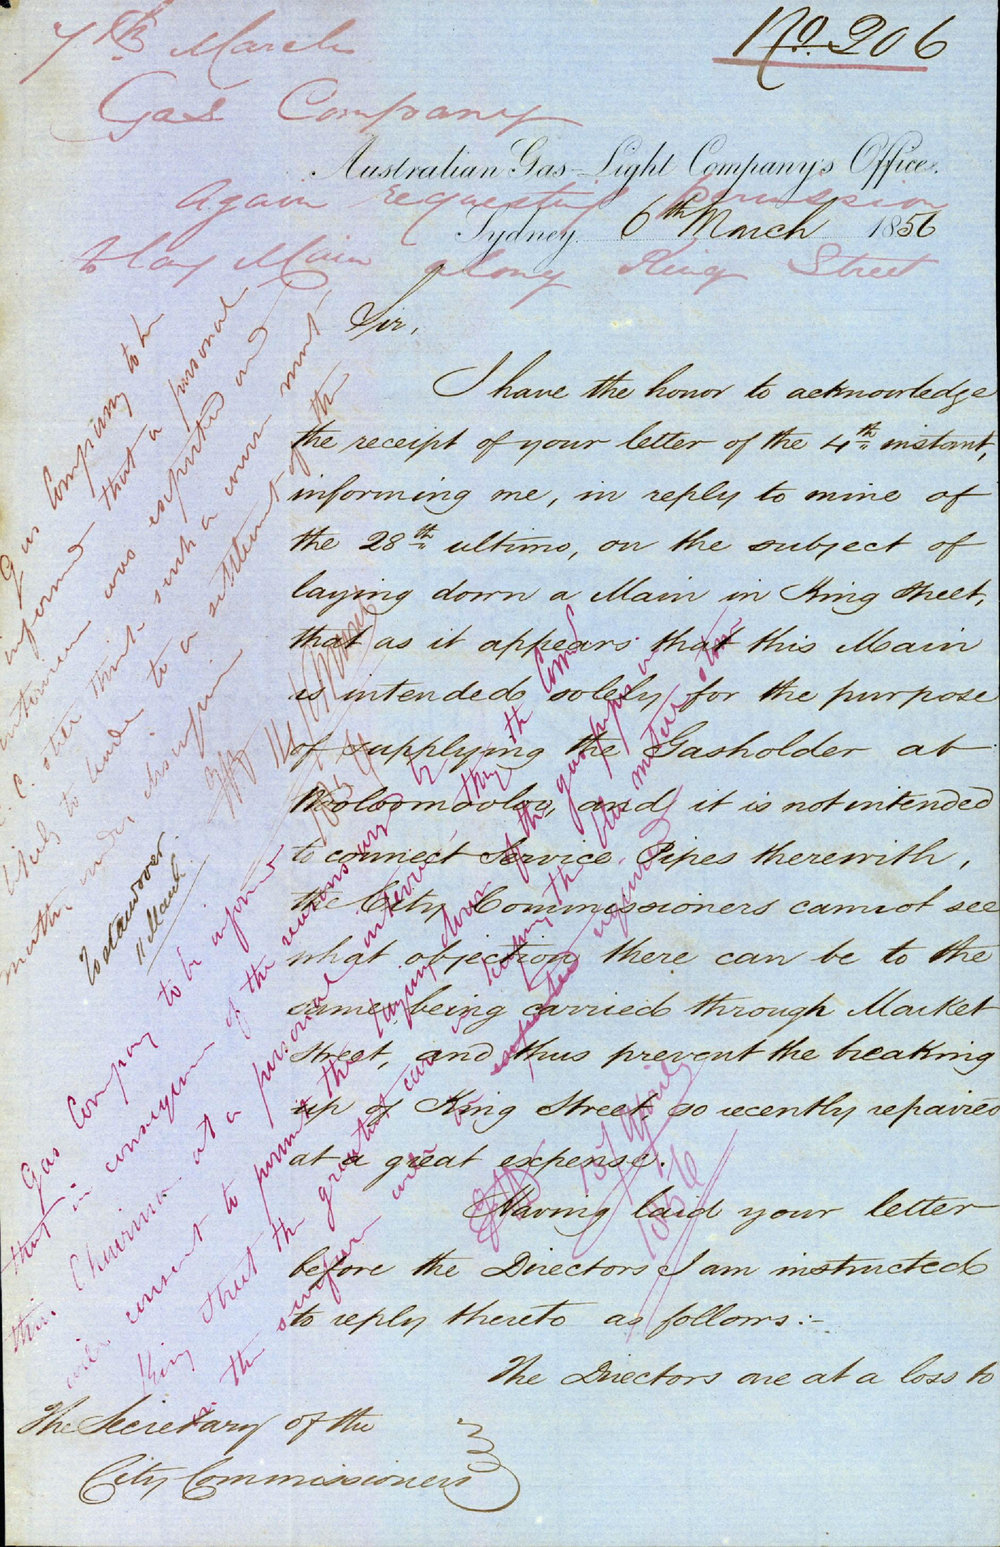 No. 206
7th March
Gas Company
Again requesting permission
to lay Main along King Street
Australian Gas-Light Company's Office.
Sydney 6th March 1856
Sir,
I have the honor to acknowledge
the receipt of your letter of the 4th instant,
informing me, in reply to mine of
the 28th ultimo, on the subject of
laying down a Main in King Street,
that as it appears that this Main
is intended solely for the purpose
of supplying the Gasholder at
Wooloomooloo, and it is not intended
to connect Service Pipes therewith,
the City Commissioners cannot see
what objection there can be to the
same being carried through Market
Street, and thus prevent the breaking
up of King Street so recently repaired
at a great expense.
Having laid your letter
before the Directors I am instructed
to reply thereto as follows:-
The Directors are at a loss to
The Secretary of the
City Commissioners
Gas Company to be
informed that a personal
interview was expected and
C. C. still think such a course most
likely to lead to a settlement of the
matter under discussion
11 March
Gas Company to be informed
that in consequence of the reasons urged by
their Chairman at a personal interview they the Comrs
will consent to permit the laying down of the gas pipes in
King Street the greatest care in keeping the
the surface will be required
1st April
1856